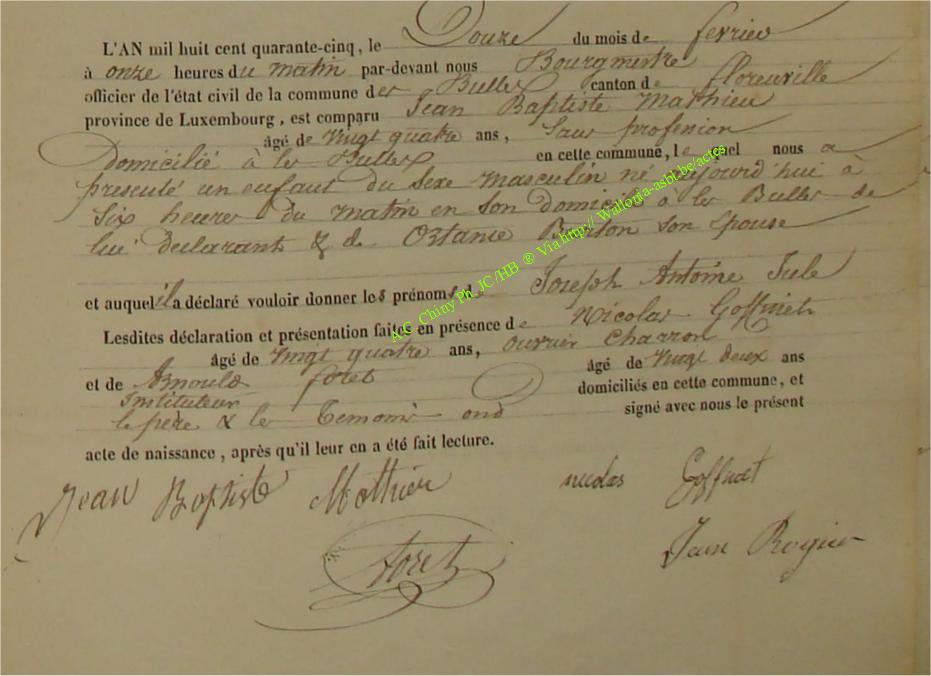 L'AN mil huit cent quarante-cinq, le Douze du mois de fevrier
à onze heures du matin par-devant nous Bourgmestre
officier de l'état civil de la commune des Bulles canton de florenville
province de Luxembourg, est comparu Jean Baptiste Mathieu
âgé de vingt quatre ans, Sans profession
Domicilié à les Bulles en cette commune, lequel nous a
presenté un enfant du Sexe masculin né aujourd'hui à
Six heures du matin en son domicile à les Bulles de
lui declarant & de Ortance son Epouse
et auquel il a déclaré vouloir donner les prénoms de Joseph Antoine Jule
Lesdites déclaration et présentation faites en présence de Nicolas Goffinet
âgé de vingt quatre ans, ouvrier charron
et de Arnould foret âgé de vingt deux ans
Instituteur domiciliés en cette commune, et
le père & les temoins ond signé avec nous le présent
acte de naissance, après qu'il leur en a été fait lecture.
Jean Baptiste Mathieu nicolas Goffinet
foret Jean Rogier
AG Chiny Ph JC/HB ® Via http://Wallonia-asbl.be/actes